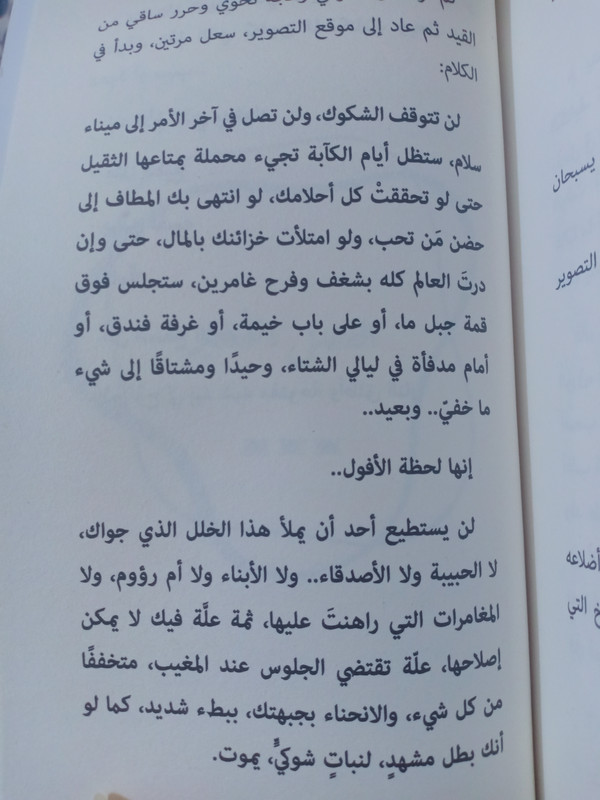 نحوي وحرر ساقي من
القيد ثم عاد إلى موقع التصوير، سعل مرتين، وبدأ في
الكلام:
لن تتوقف الشكوك، ولن تصل في آخر الأمر إلى ميناء
سلام، ستظل أيام الكآبة تجيء محملة بمتاعها الثقيل
حتى لو تحققتْ كل أحلامك، لو انتهى بك المطاف إلى
حضن مَن تحب، ولو امتلأت خزائنك بالمال، حتى وإن
درتَ العالم كله بشغف وفرح غامرين، ستجلس فوق
قمة جبل ما، أو على باب خيمة، أو غرفة فندق، أو
أمام مدفأة في ليالي الشتاء، وحيدًا ومشتاقًا إلى شيء
ما خفيّ.. وبعيد..
إنها لحظة الأفول..
لن يستطيع أحد أن يملأ هذا الخلل الذي جواك،
لا الحبيبة ولا الأصدقاء.. ولا الأبناء ولا أم رؤوم، ولا
المغامرات التي راهنتَ عليها، ثمة علَّة فيك لا يمكن
إصلاحها، علّة تقتضي الجلوس عند المغيب، متخففًا
من كل شيء، والانحناء بجبهتك، ببطء شديد، كما لو
أنك بطل مشهدٍ، لنباتٍ شوكيٍّ، يموت.
يسبحان
التصوير
أضلاعه
التي